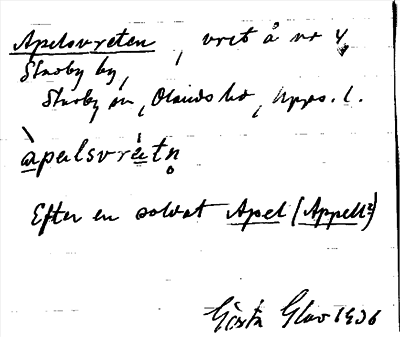 Apelsvreten, vret å nr 4,
Starby by,
Starby sn, Olands hd, Upps. l.
àpəlsvrètn̥
Efter en soldat Apel (Appell?)
Gösta Glav 1936